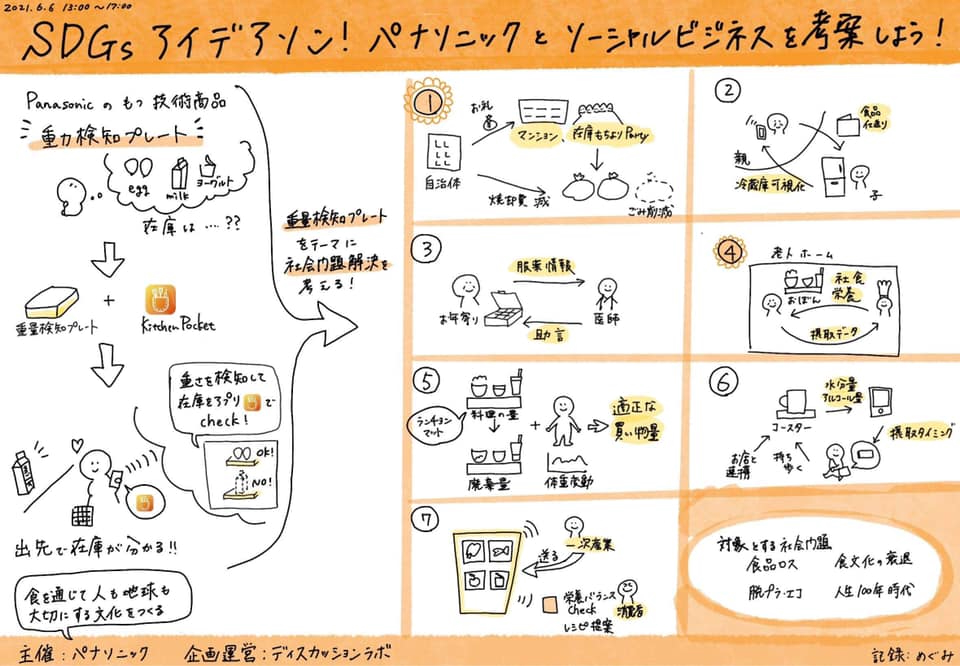 2021.6.6 13:00〜17:00
SDGs アイデアソン! パナソニックとソーシャルビジネスを考案しよう!
Panasonicのもつ技術商品
重力検知プレート
egg
milk
ヨーグルト
在庫は....??
重量検知プレート
+
KitchenPocket
重さを検知して
在庫をアプリで
check!
OK!
NO!
出先で在庫が分かる!!
食を通じて人も地球も
大切にする文化をつくる
重量検知プレート
をテーマに
社会問題解決を
考える!
①
お礼
マンション、在庫もちよりParty
自治体
焼却費減
ごみ削減
②
食品
仕送り
親
冷蔵庫可視化
子
③
服薬情報
お年寄り
医師
助言
④
老人ホーム
社食
栄養
おぼん
摂取データ
⑤
ランチョン
マット
料理の量
+
適正な
買い物量
廃棄量
体重変動
⑥
水分量
アルコール量
コースター
摂取タイミング
お店と
連携
持ち
歩く
⑦
一次産業
送る
栄養バランス
check
レシピ提案
消費者
対象とする社会問題
食品ロス 食文化の衰退
脱プラ・エコ 人生100年時代
主催:パナソニック 企画運営:ディスカッションラボ
記録:めぐみ